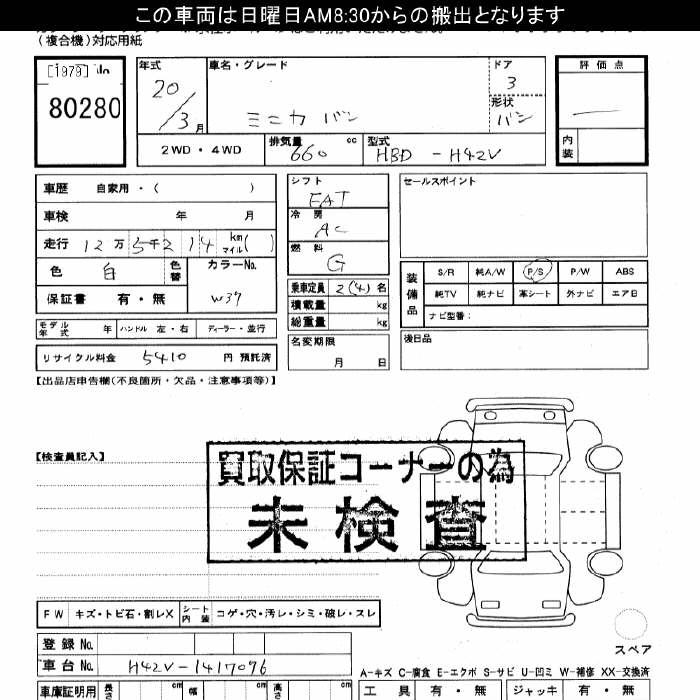 この車両は日曜日AM8:30からの搬出となります
(複合機)対応用紙
[1979]
80280
年式
20/3月
車名・グレード
ミニカ バン
ドア
3
形状
バン
評価点
内装
2WD・4WD
排気量
660 cc
型式
HBD-H42V
車歴 自家用・( )
車検 年 月
走行 12万5千214 km マイル( )
色 白 色替
カラーNo.
W37
保証書 有・無
モデル年式 年 ハンドル 左・右 ディーラー・並行
リサイクル料金 5410 円 預託済
シフト
FAT
冷房
AC
燃料
G
乗車定員 2(4)名
積載量 kg
総重量 kg
名変期限
月 日
セールスポイント
装備品
S/R 純A/W P/S P/W ABS
純TV 純ナビ 革シート 外ナビ エアB
ナビ型番:
後日品
【出品店申告欄(不良箇所・欠品・注意事項等)】
【検査員記入】
買取保証コーナーの為
未検査
FW キズ・トビ石・割レX シート内装 コゲ・穴・汚レ・シミ・破レ・スレ
登録No.
車台No. H42V-1417096
スペア
A-キズ C-腐食 E-エクボ S-サビ U-凹ミ W-補修 XX-交換済
車庫証明用 長さ cm 幅 cm 高さ cm
工具 有・無 ジャッキ 有・無